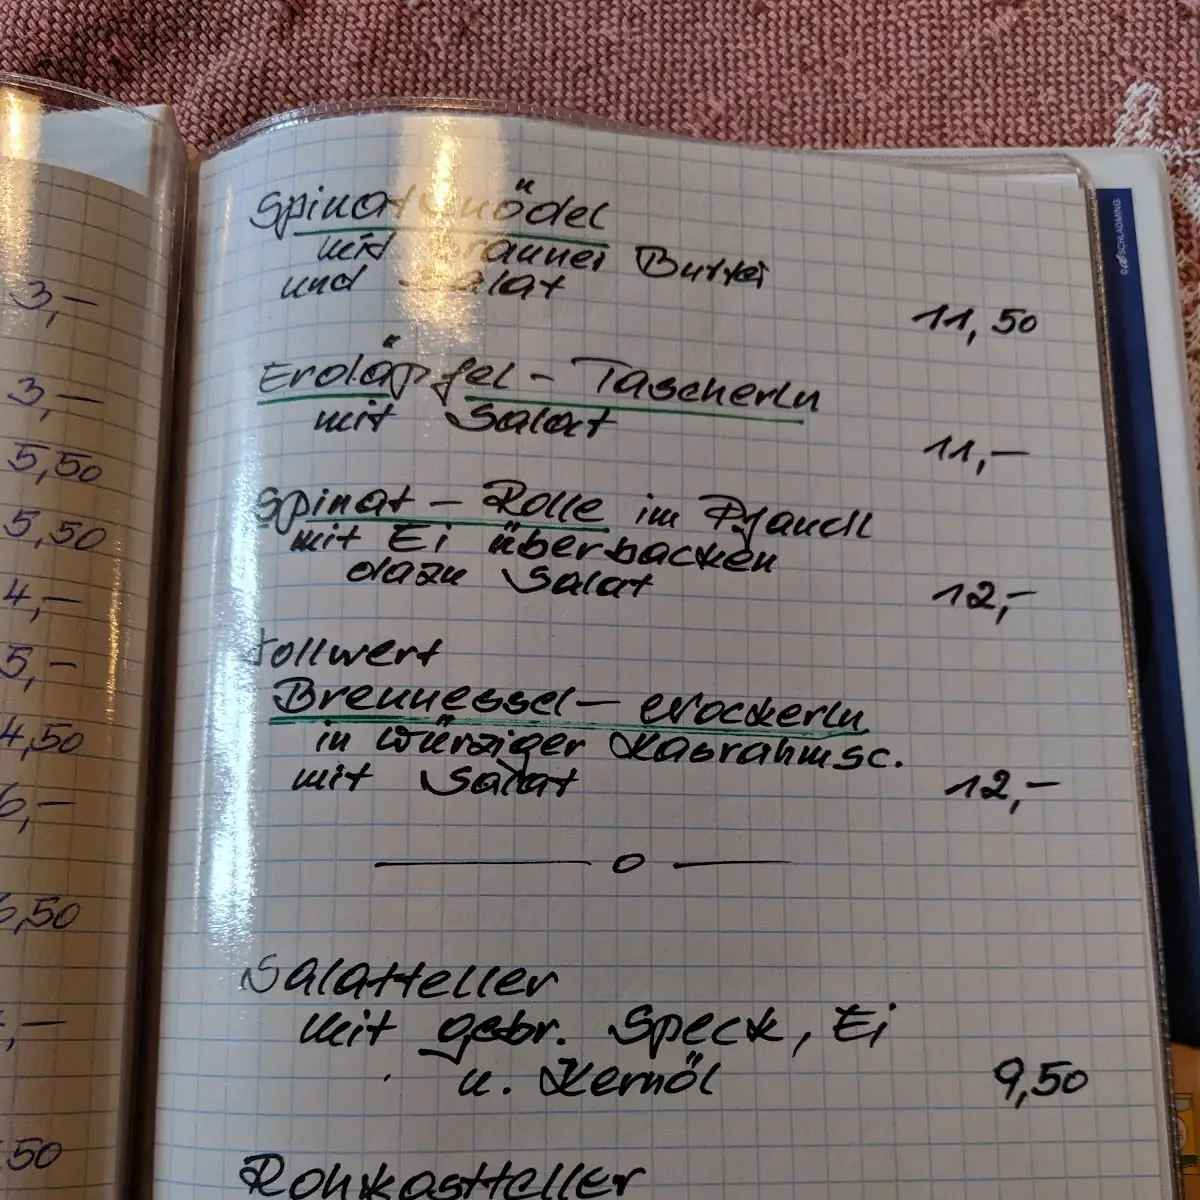 3,-
3,-
5,50
5,50
4,-
5,-
4,50
6,-
6,50
,-
50
Spinatknödel
mit brauner Butter
und Salat
11,50
Erdäpfel - Tascherln
mit Salat
11,-
Spinat - Rolle im Pfandl
mit Ei überbacken
dazu Salat
12,-
Vollwert
Brennessel - Nockerln
in würziger Kasrahmsc.
mit Salat
12,-
o
Salatteller
mit gebr. Speck, Ei
u. Kernöl
9,50
Rohkostteller
SCHLADMING